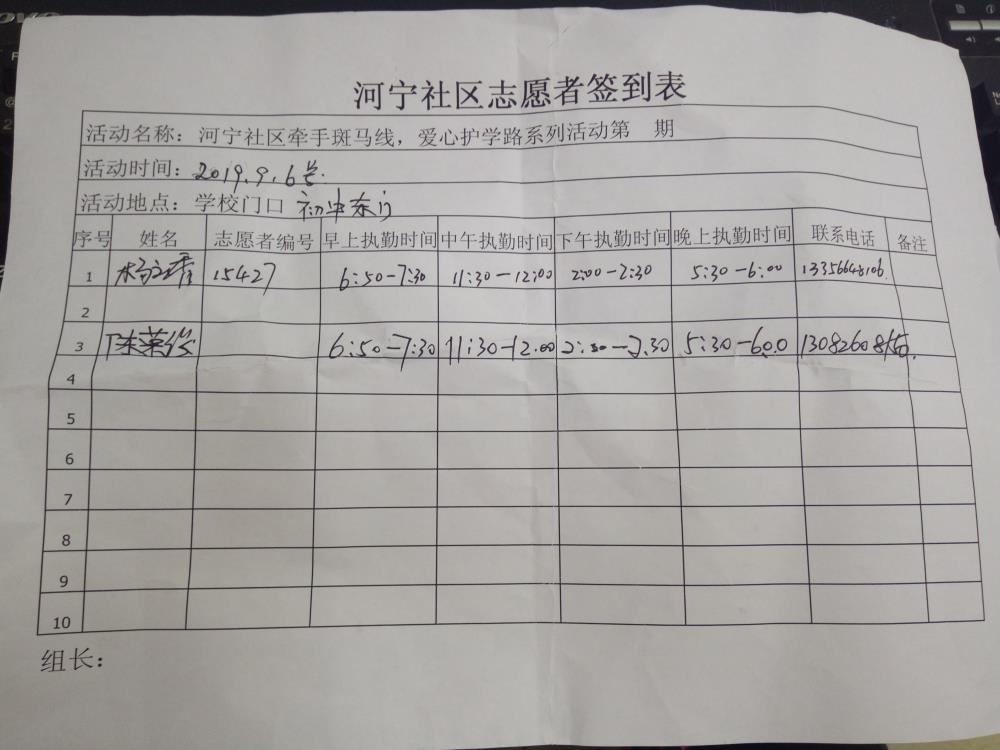 河宁社区志愿者签到表
活动名称：河宁社区牵手斑马线，爱心护学路系列活动第 期
活动时间：2019.9.6号.
活动地点：学校门口 初中东门
序号 姓名 志愿者编号 早上执勤时间 中午执勤时间 下午执勤时间 晚上执勤时间 联系电话 备注
1 15427 6:50-7:30 11:30-12:00 2:00-2:30 5:30-6:00 13356648106.
2
3 6:50-7:30 11:30-12.00 2:30-2.30 5:30-60.0
4
5
6
7
8
9
10
组长：